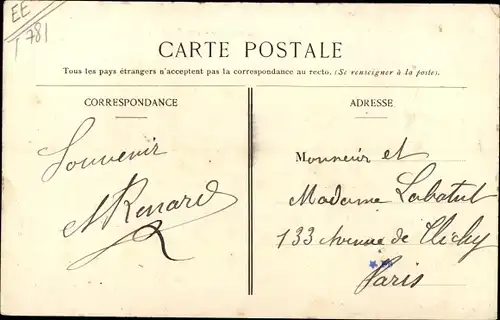 EE
T 781
CARTE POSTALE
Tous les pays étrangers n'acceptent pas la correspondance au recto. (Se renseigner à la poste).
CORRESPONDANCE
Souvenir
Renard
ADRESSE
Monsieur et
Madame Labatut
133 Avenue de Clichy
Paris